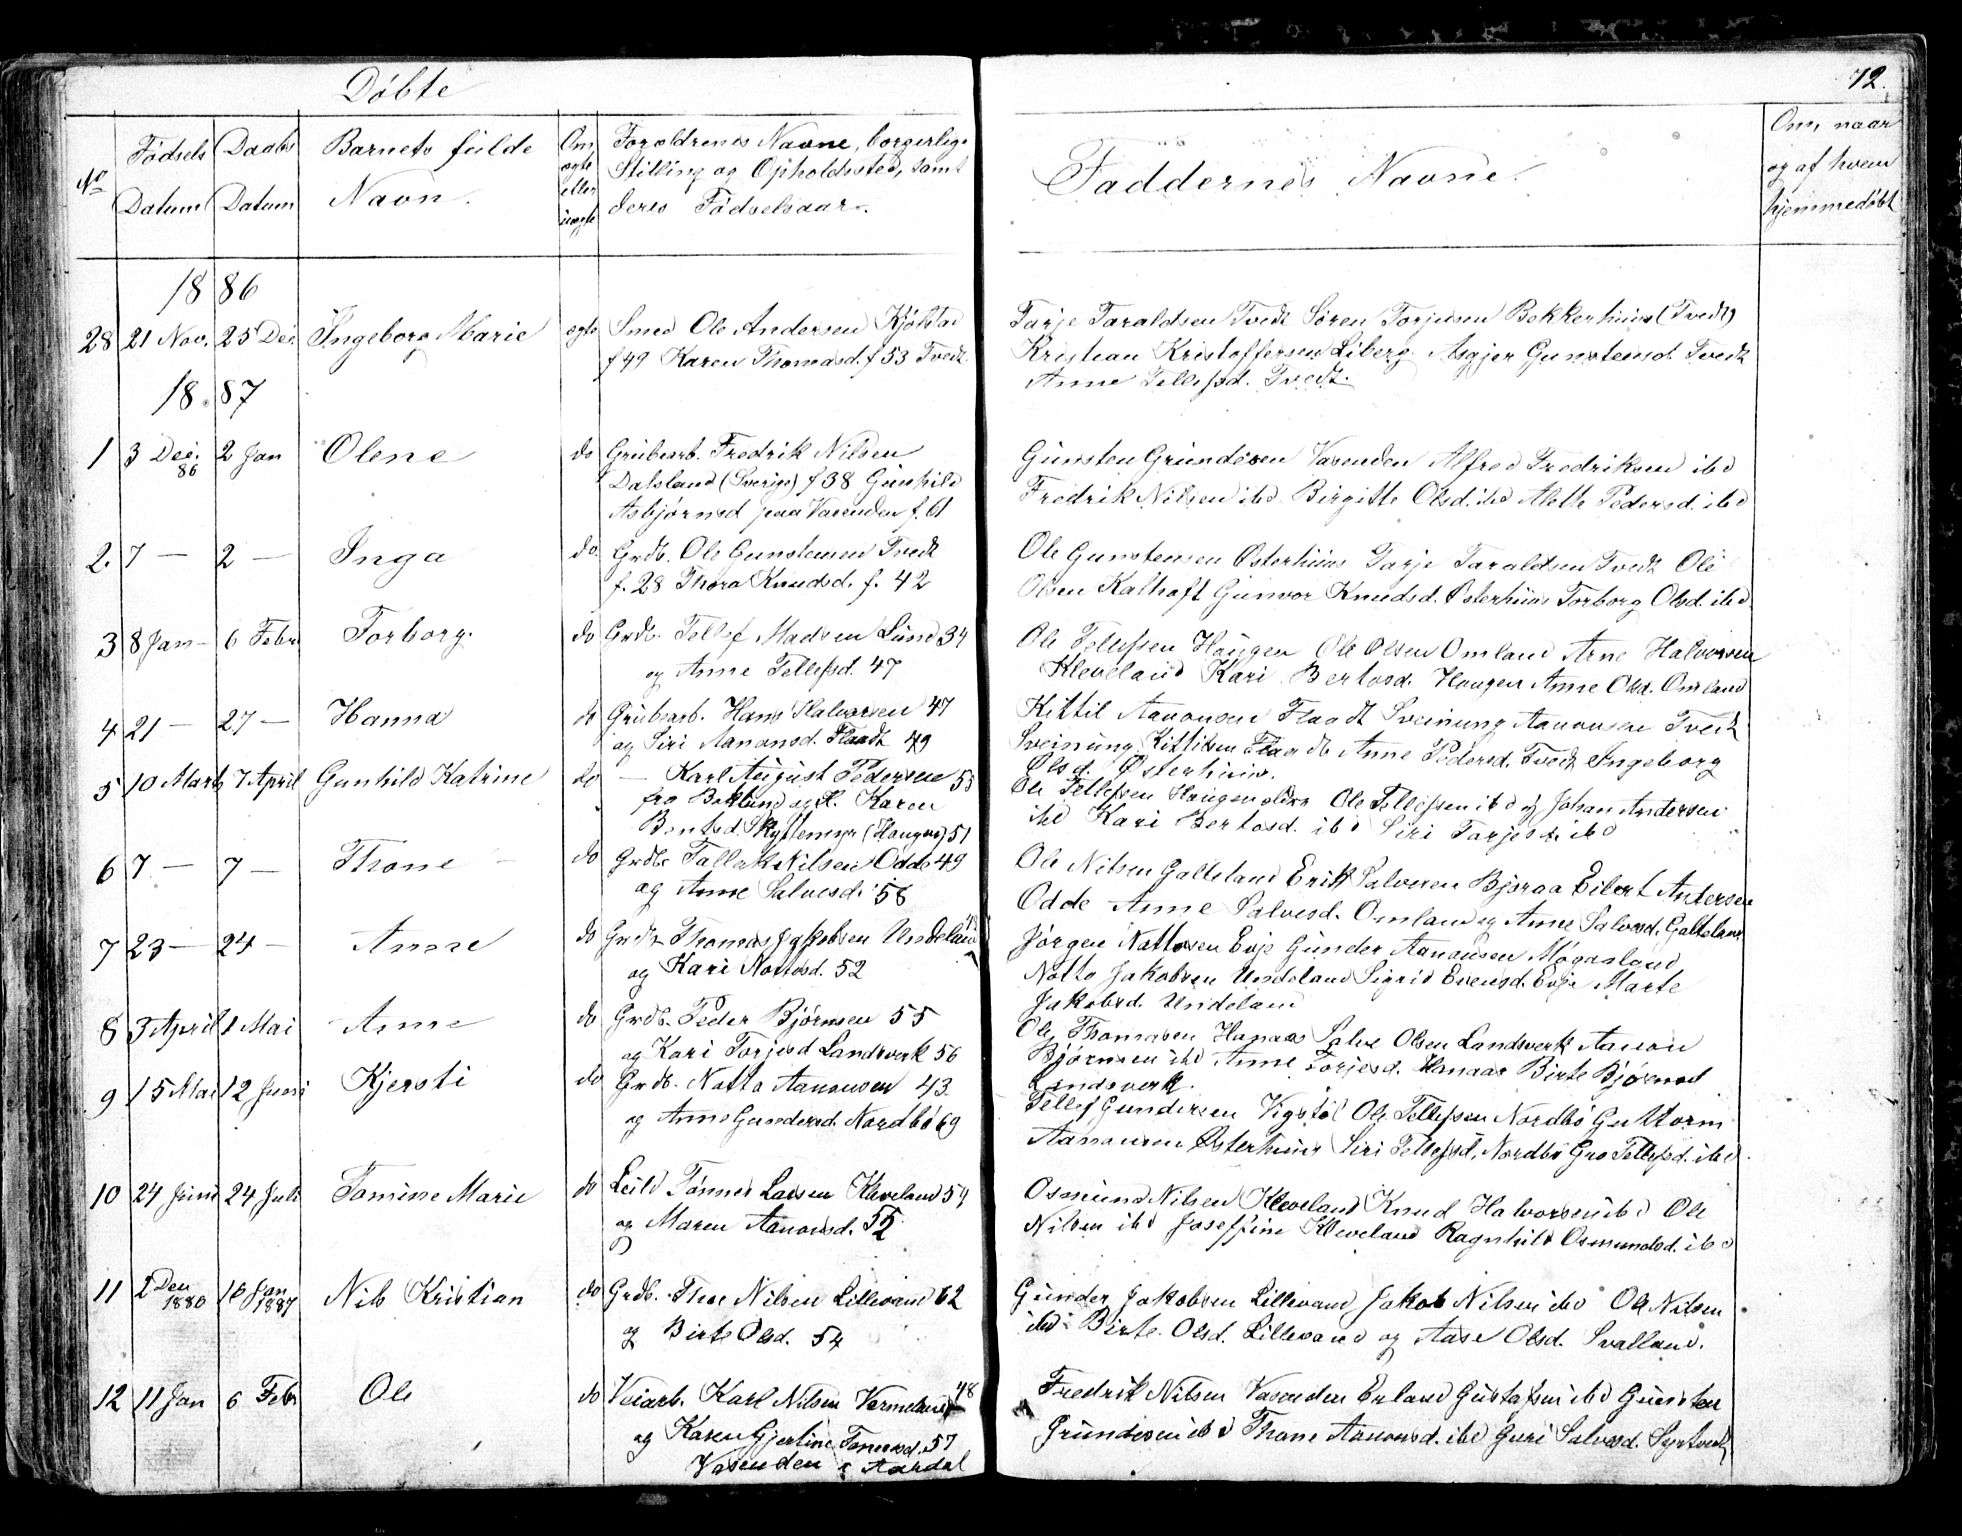 Døbte
72.
No
Fødsels Datum
Daabs Datum
Barnets fulde Navn.
Om ægte eller uægte
Forældrenes Navne, borgerlige
Stilling og Opholdssted, samt
deres Fødselsaar.
Faddernes Navne.
Om, naar
og af hvem
hjemmedøbt
1886
28 21 Nov. 25 Dec Ingeborg Marie ægte Smed Ole Andersen Kjøkstad
f 49 Karen Thomasd. f 53 Tvedt.
Tarje Taraldsen Tvedt Søren Torjusen Bekkerhuus (Tvedt)
Kristian Kristoffersen Liberg Asgjer Gunstensd. Tvedt
Anne Tellefsd. Tvedt.
1887
1 3 Dec. 86 2 Jan Olene do Grubearb. Fredrik Nilsen
Dalsland (Sverige) f 38 Gunhild
Asbjørnsd paa Vasenden f. 61
Gunsten Grundesen Vasenden Alfred Fredriksen ibd
Fredrik Nilsen ibd Birgitte Olsd. ibd Alette Pedersd. ibd
2. 7 — 2 — Inga do. Grdb. Ole Gunstensen Tvedt
f. 28 Thora Knudsd. f. 42
Ole Gunstensen Østerhuus Tarje Taraldsen Tvedt Ole
Olsen Kalhoft Gunvor Knudsd. Østerhuus Torborg Olsd. ibd
3 8 Jan — 6 Febr Torborg. do Grdb. Tellef Madsen Lund 34
og Anne Tellefsd. 47
Ole Tellefsen Haugen Ole Olsen Omland Arne Halvorsen
Kleveland Kari Bertosd. Haugen Anne Olsd. Omland
4 21 — 27 — Hanna do Grubearb. Hans Halvorsen 47
og Siri Aanonsd. Flaadt 49
Kittil Aanonsen Flaadt Sveinung Aanonsen Tvedt
Sveinung Kittilsen Flaadt Anne Pedersd. Tvedt Ingeborg
Olsd. Østerhuus.
5 10 Marts 7 April Gunhild Katrine do — Karl August Pedersen 53
fra Karen
Bentsd. Skyttemyr (Haugen) 51
Ole Tellefsen Haugen Ole Tellefsen ibd og Johan Andersen
ibd Kari Bertosd. ibd Siri Tarjesd. ibd
6 7 — 7 — Thone do Grdb. Tallak Nilsen Odde 49
og Anne Salvesd. 58
Ole Nilsen Galteland Erik Salvesen Bjoraa Eilert Antersen
Odde Anne Salvesd. Omland og Anne Salvesd. Galteland
7 23 — 24 — Anne do Grdb. Thomas Jakobsen Undeland
og Kari Nottosd. 52
Jørgen Nottosen Evje Gunder Aanonsen Møgasland
Notto Jakobsen Undeland Sigrid Evensd. Evje Marte
Jakobsd. Undeland
8 3 April 1 Mai Anne do Grdb. Peder Bjørnsen 55
og Kari Torjesd Landsverk 56
Ole Thomasen Hanaas Salve Olsen Landsverk Aanon
Bjørnsen ibd Anne Torjesd. Hanaas Birte Bjørnsd
Landsverk.
9 15 Mai 12 Juni Kjersti do Grdb. Notto Aanonsen 43
og Anne Gundersd. Nordbø 69
Tellef Gundersen Vigstøl Ole Tellefsen Nordbø Guttorm
Aanonsen Østerhuus Siri Tellefsd. Nordbø Gro Tellefsd. ibd.
10 24 Juni 24 Juli Tomine Marie do Leild Tønnes Larsen Kleveland 54
og Maren Aanonsd. 55
Osmund Nilsen Kleveland Knud Halvorsen ibd Ole
Nilsen ibd Josefine Kleveland Ragnhild Osmundsd. ibd
11 Dec 1886 16 Jan 1887 Nils Kristian do Grdb. Thor Nilsen Lillevand 62
og Birte Olsd. 54
Gunder Jakobsen Lillevand Jakob Nilsen ibd Ole Nilsen
ibd Birte Olsd. Lillevand og Aase Olsd. Svalland.
12 11 Jan 6 Febr Ole do Veiarb. Karl Nilsen Vermeland 48
og Karen Gjertine Tomesd. 57
Vasenden i Aardal
Fredrik Nilsen Vasenden Erland Gustafsen ibd Gunsten
Grundesen ibd Thone Aanonsd. ibd Guri Salvesd. Syrtveit